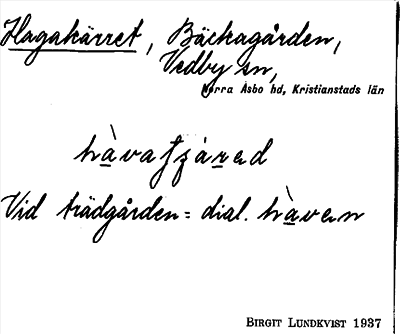 Hagakärret, Bäckagården,
Vedby sn,
Norra Åsbo hd, Kristianstads län
hàvaʃʒárəd
Vid trädgården = dial. hàvən
BIRGIT LUNDKVIST 1937